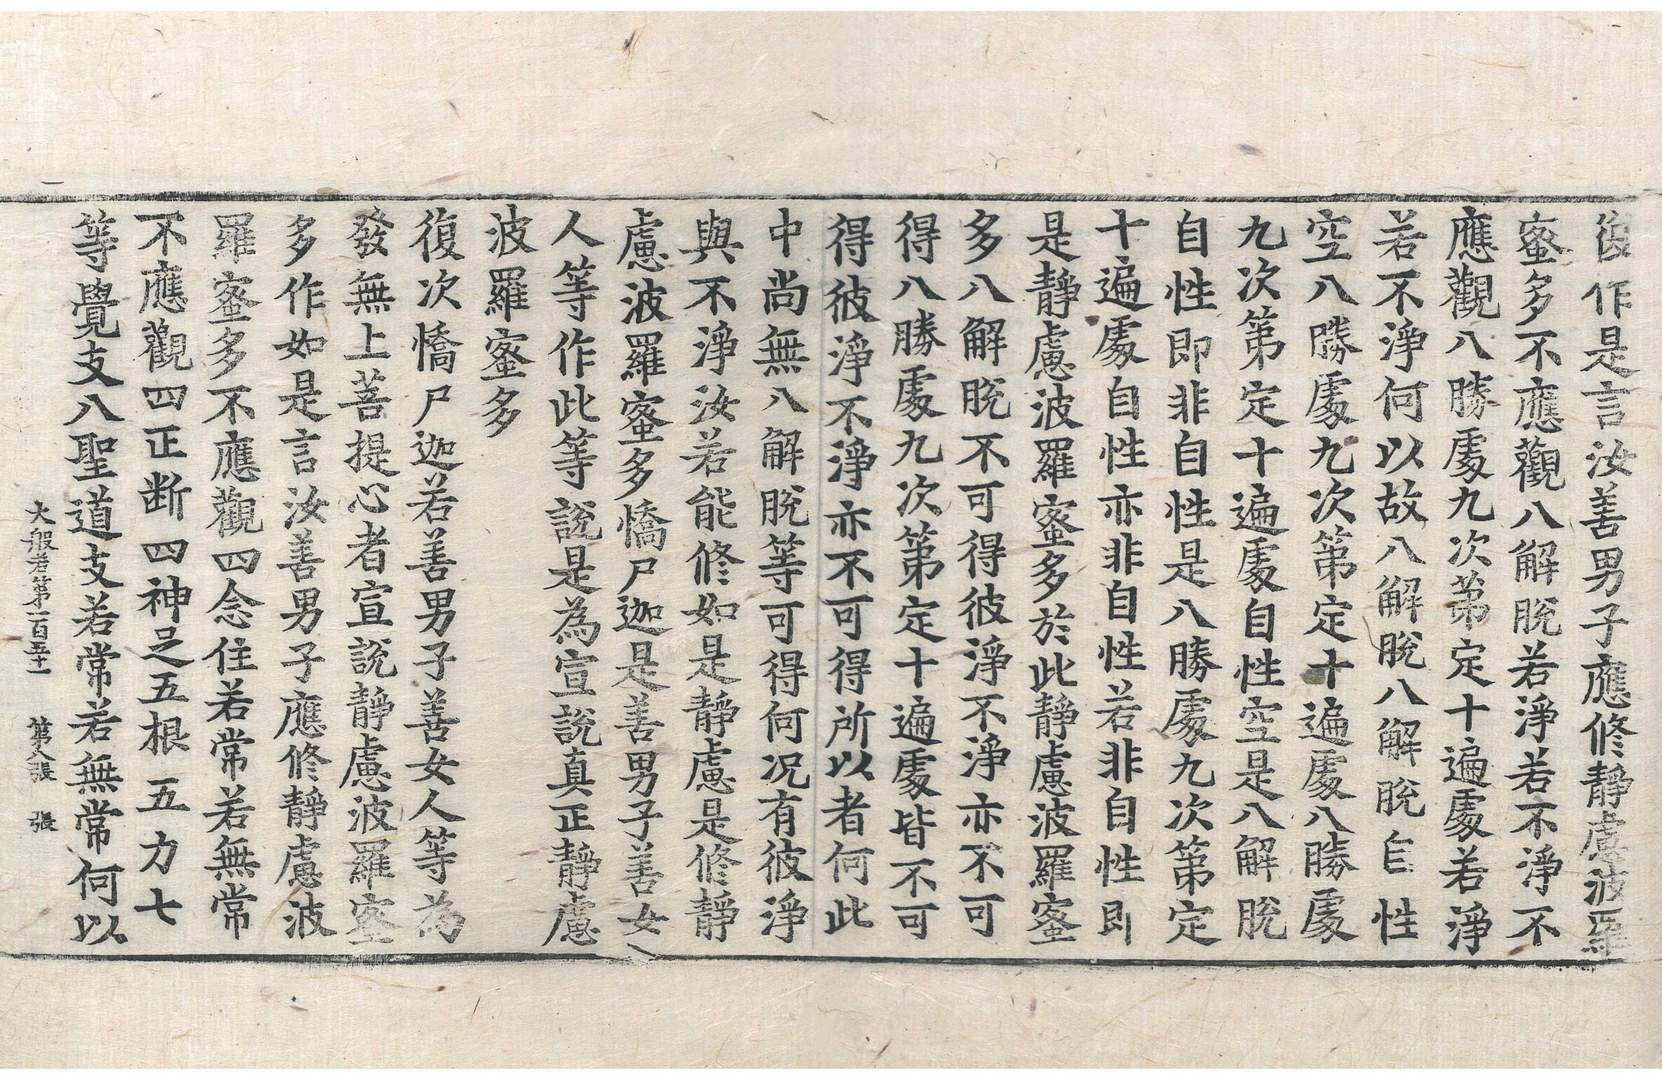 復作是言汝善男子應修靜慮波羅
蜜多不應觀八解脫若淨若不淨不
應觀八勝處九次第定十遍處若淨
若不淨何以故八解脫八解脫自性
空八勝處九次第定十遍處八勝處
九次第定十遍處自性空是八解脫
自性即非自性是八勝處九次第定
十遍處自性亦非自性若非自性即
是靜慮波羅蜜多於此靜慮波羅蜜
多八解脫不可得彼淨不淨亦不可
得八勝處九次第定十遍處皆不可
得彼淨不淨亦不可得所以者何此
中尚無八解脫等可得何況有彼淨
與不淨汝若能修如是靜慮是修靜
慮波羅蜜多憍尸迦是善男子善女
人等作此等說是為宣說真正靜慮
波羅蜜多
復次憍尸迦若善男子善女人等為
發無上菩提心者宣說靜慮波羅蜜
多作如是言汝善男子應修靜慮波
羅蜜多不應觀四念住若常若無常
不應觀四正断四神足五根五力七
等覺支八聖道支若常若無常何以
大般若第一百五十一 第八張 張